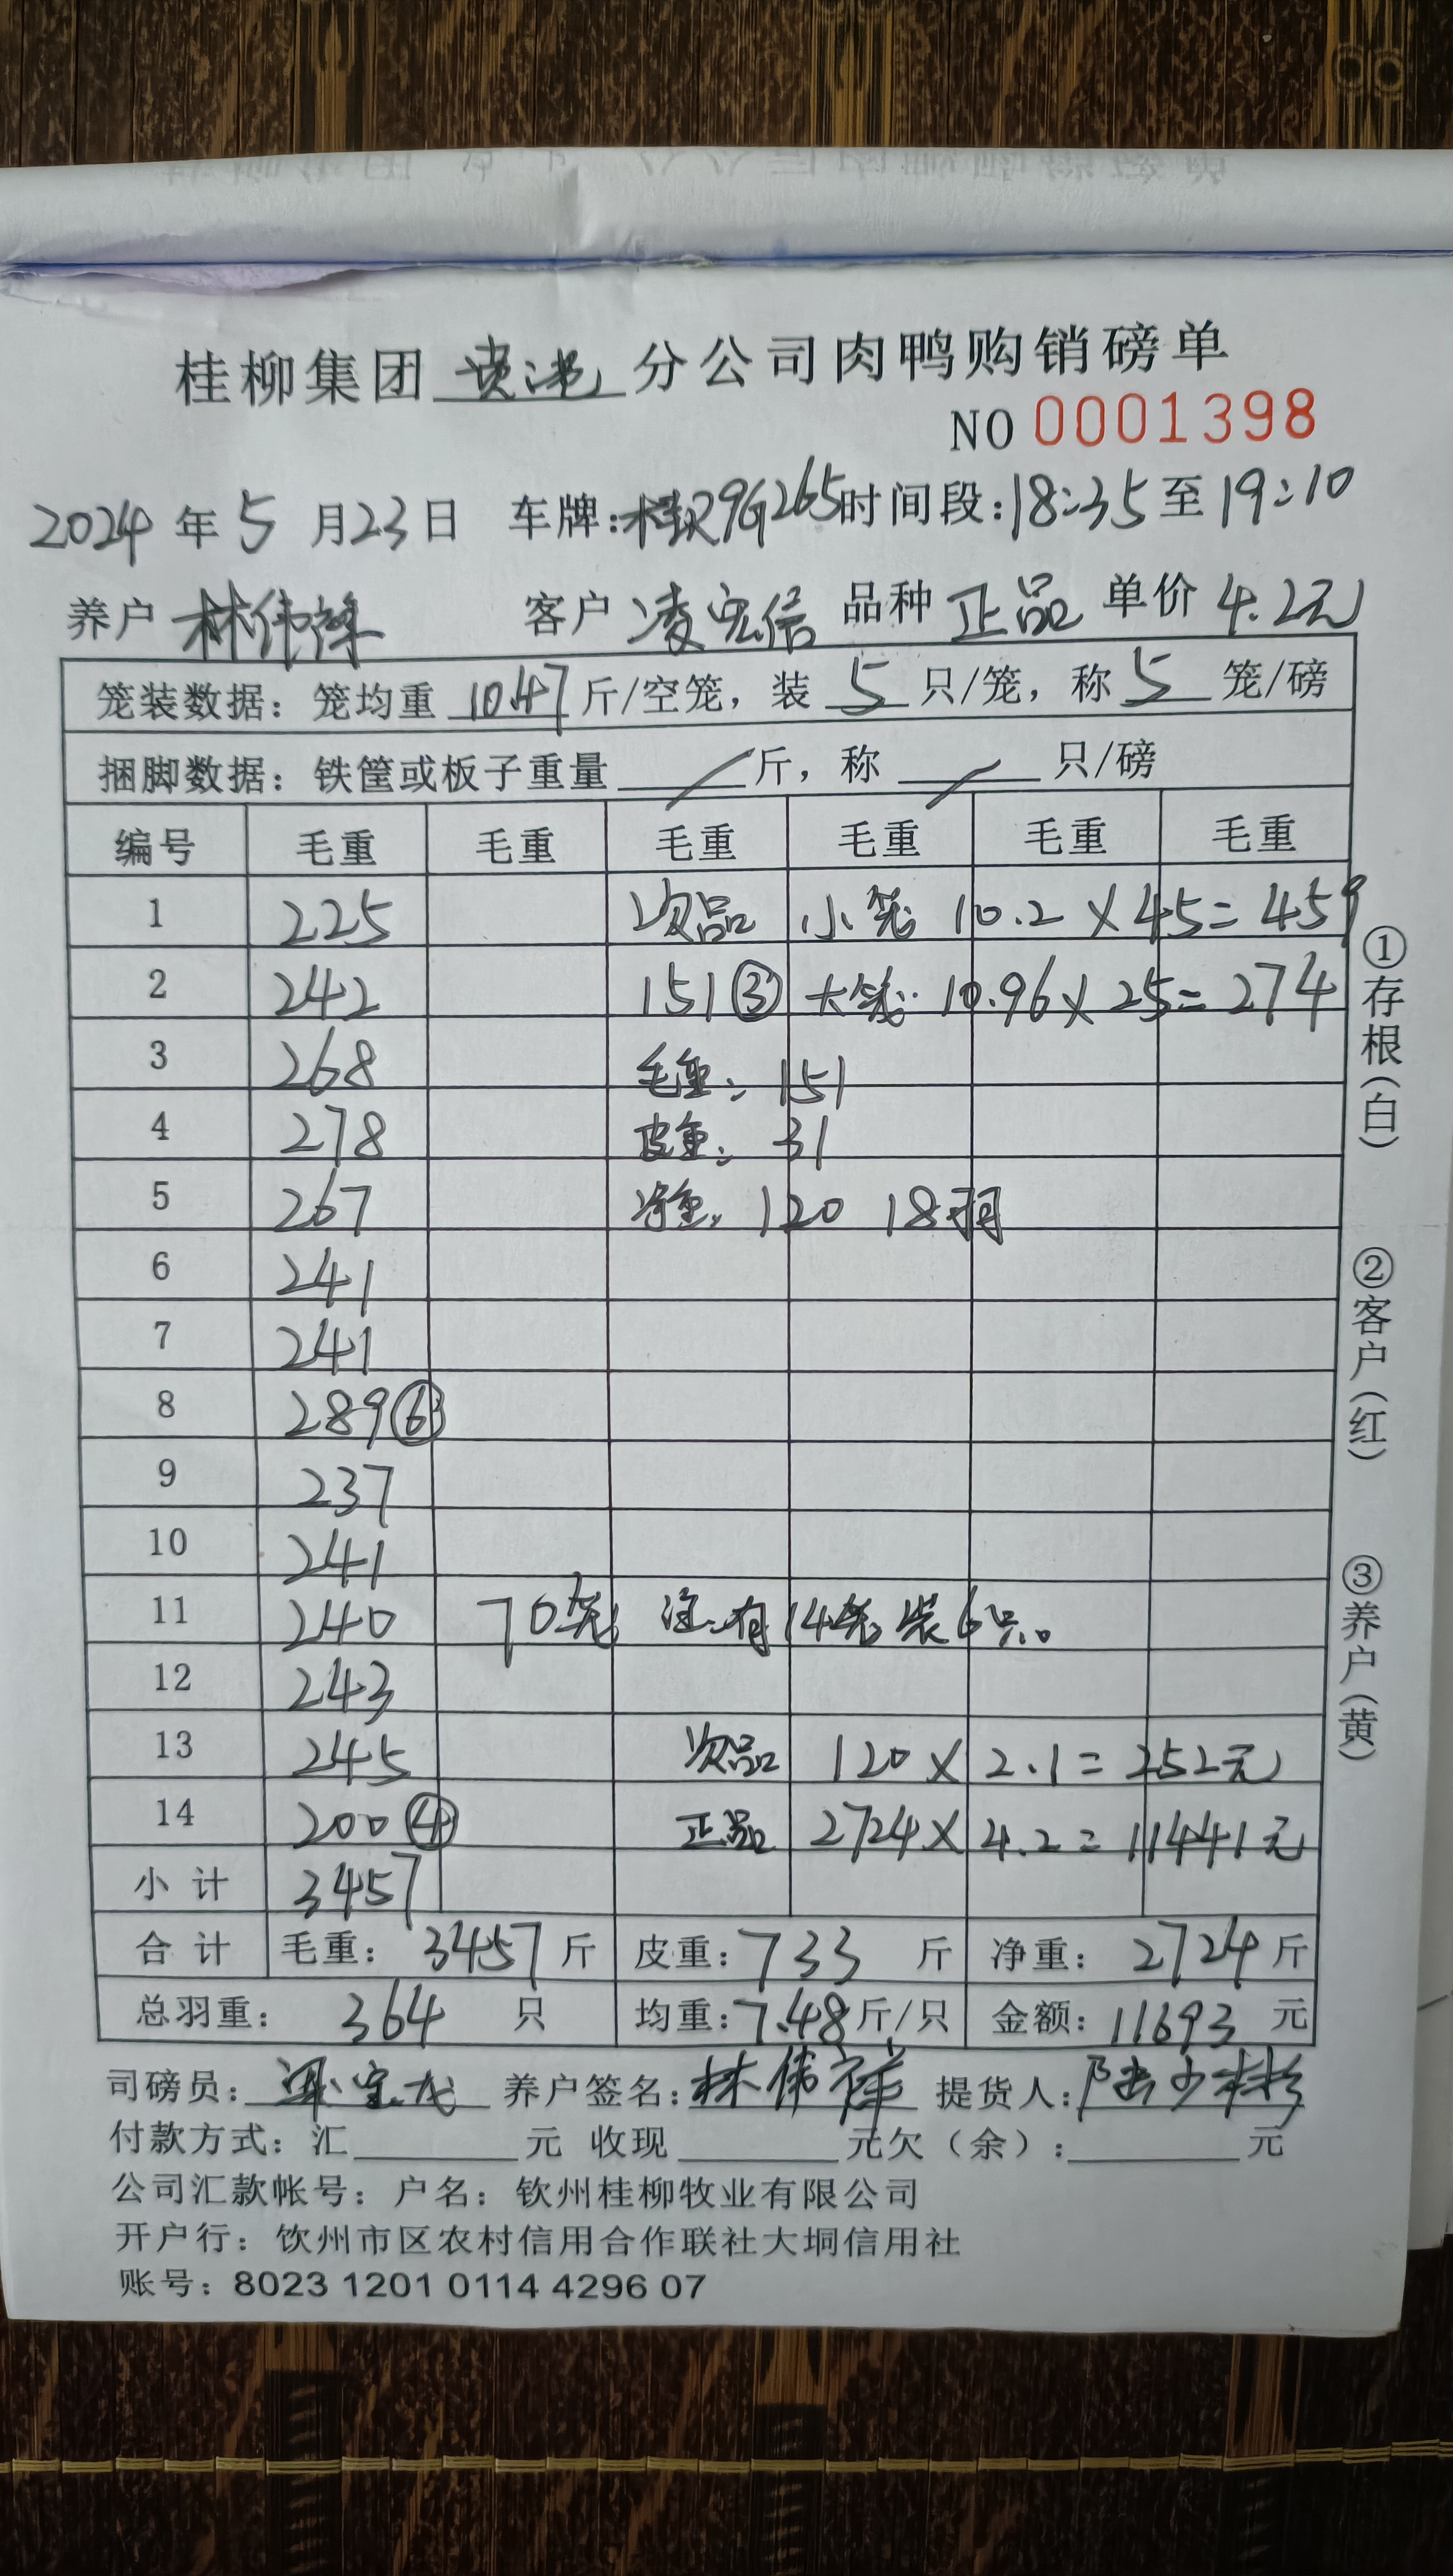 桂柳集团贵港分公司肉鸭购销磅单
NO 0001398
2024年5月23日 车牌:桂R9G265时间段:18:35至19:10
养户 林伟锋 客户 凌宏信 品种 正品 单价 4.2元
笼装数据: 笼均重 10.47 斤/空笼, 装 5 只/笼, 称 5 笼/磅
捆脚数据: 铁筐或板子重量 / 斤, 称 / 只/磅
编号 毛重 毛重 毛重 毛重 毛重 毛重
1 225 次品 小笼 10.2×45=459
2 242 151③ 大笼: 10.96×25=274
3 268 毛重: 151
4 278 皮重: 31
5 267 净重: 120 18羽
6 241
7 241
8 289⑥
9 237
10 241
11 240 70笼 注:有14笼装6只。
12 243
13 245 次品 120×2.1=252元
14 200④ 正品 2724×4.2=11441元
小计 3457
合计 毛重: 3457斤 皮重: 733 斤 净重: 2724斤
总羽重: 364 只 均重: 7.48斤/只 金额: 11693 元
司磅员: 宝龙 养户签名: 林伟 提货人: 陆少彬
付款方式: 汇 元 收现 元欠(余): 元
公司汇款帐号: 户名: 钦州桂柳牧业有限公司
开户行: 饮州市区农村信用合作联社大垌信用社
账号: 8023 1201 0114 4296 07
①存根(白)
②客户(红)
③养户(黄)